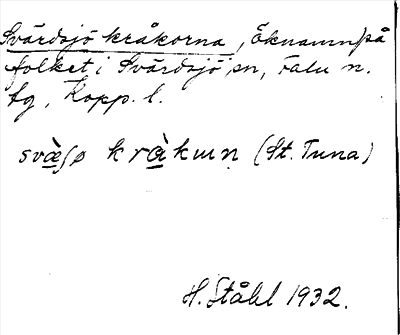 Svärdsjö kråkorna, öknamn på
folket i Svärdsjö sn, Falu n.
tg, Kopp. l.
svæ̀ʃø kràkuɪṇ (St. Tuna)
H. Ståhl 1932.